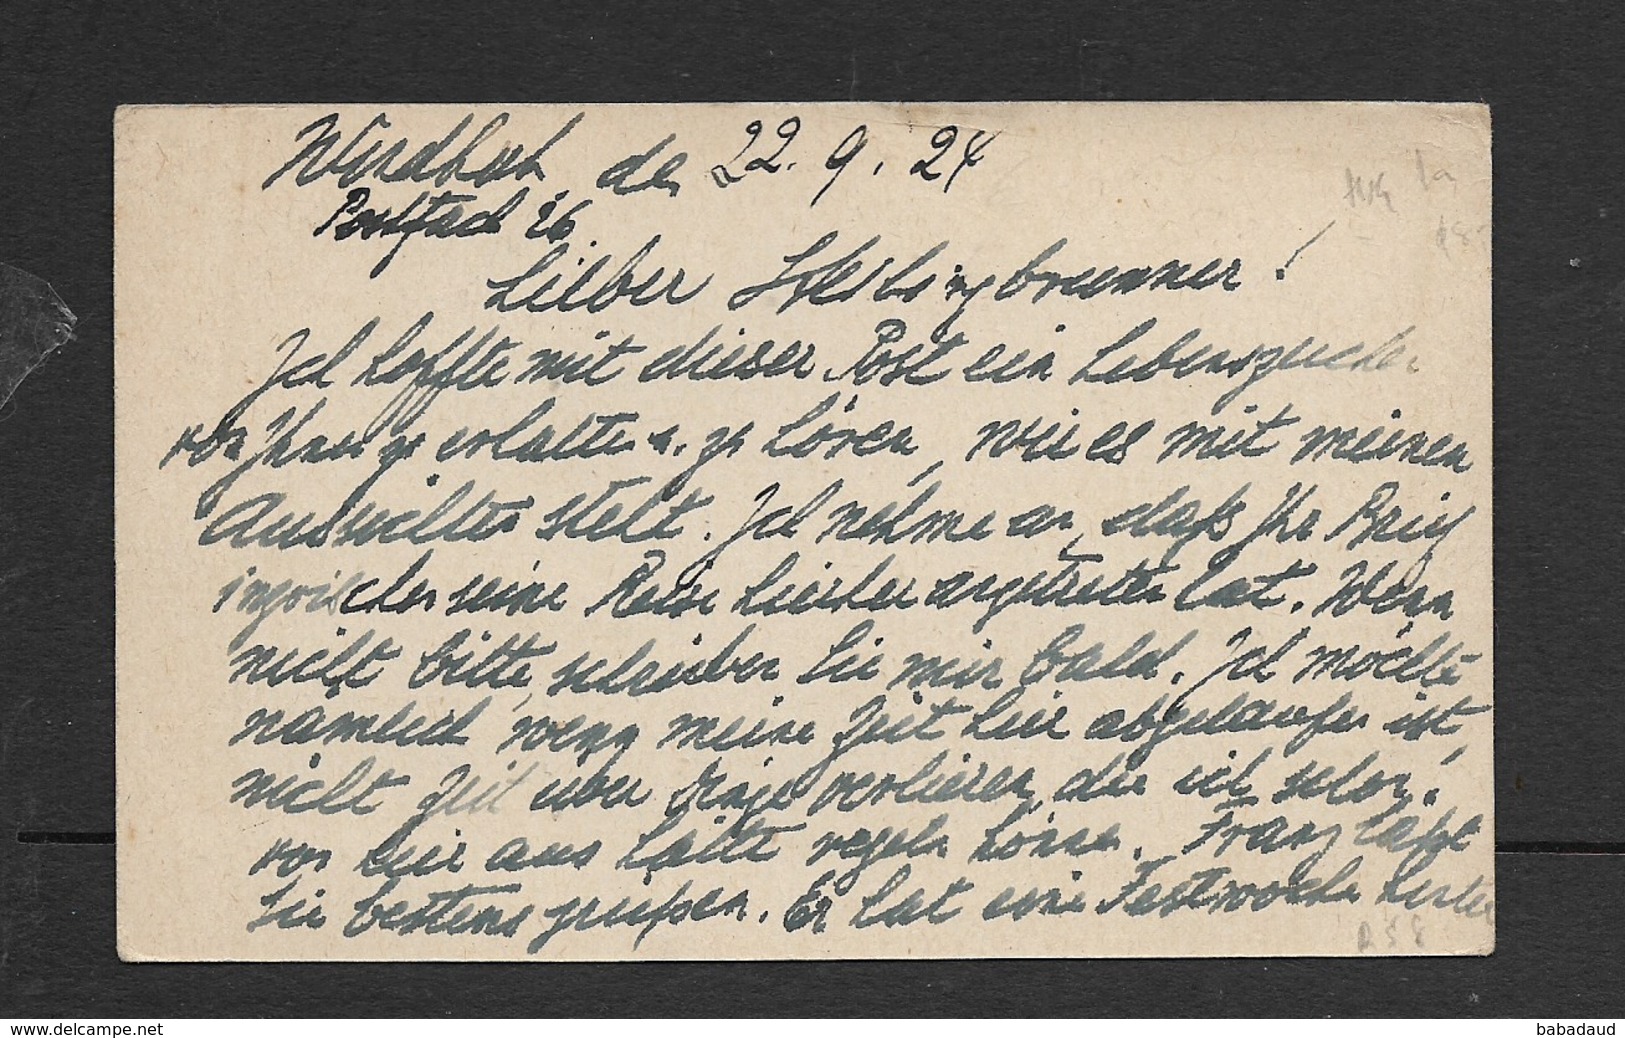 Windhuk den 22. 9. 24
Postfach 26
Lieber Heilingbrunner!
Ich hoffte mit dieser Post ein Lebenszeichen
von Ihnen zu erhalten u. zu hören, wie es mit meinen
steht. Ich nehme an, daß Ihr
seine Reise hierher angetreten hat. Wenn
nicht bitte, schreiben Sie mir bald. Ich möchte
nämlich, wenn meine Zeit hier abgelaufen ist,
nicht Zeit über Dinge verlieren, die ich schon
von hier aus hätte regeln können. Franz läßt
Sie bestens grüßen. Er hat eine Festwoche hinter
R58
www.delcampe.net
babadaud